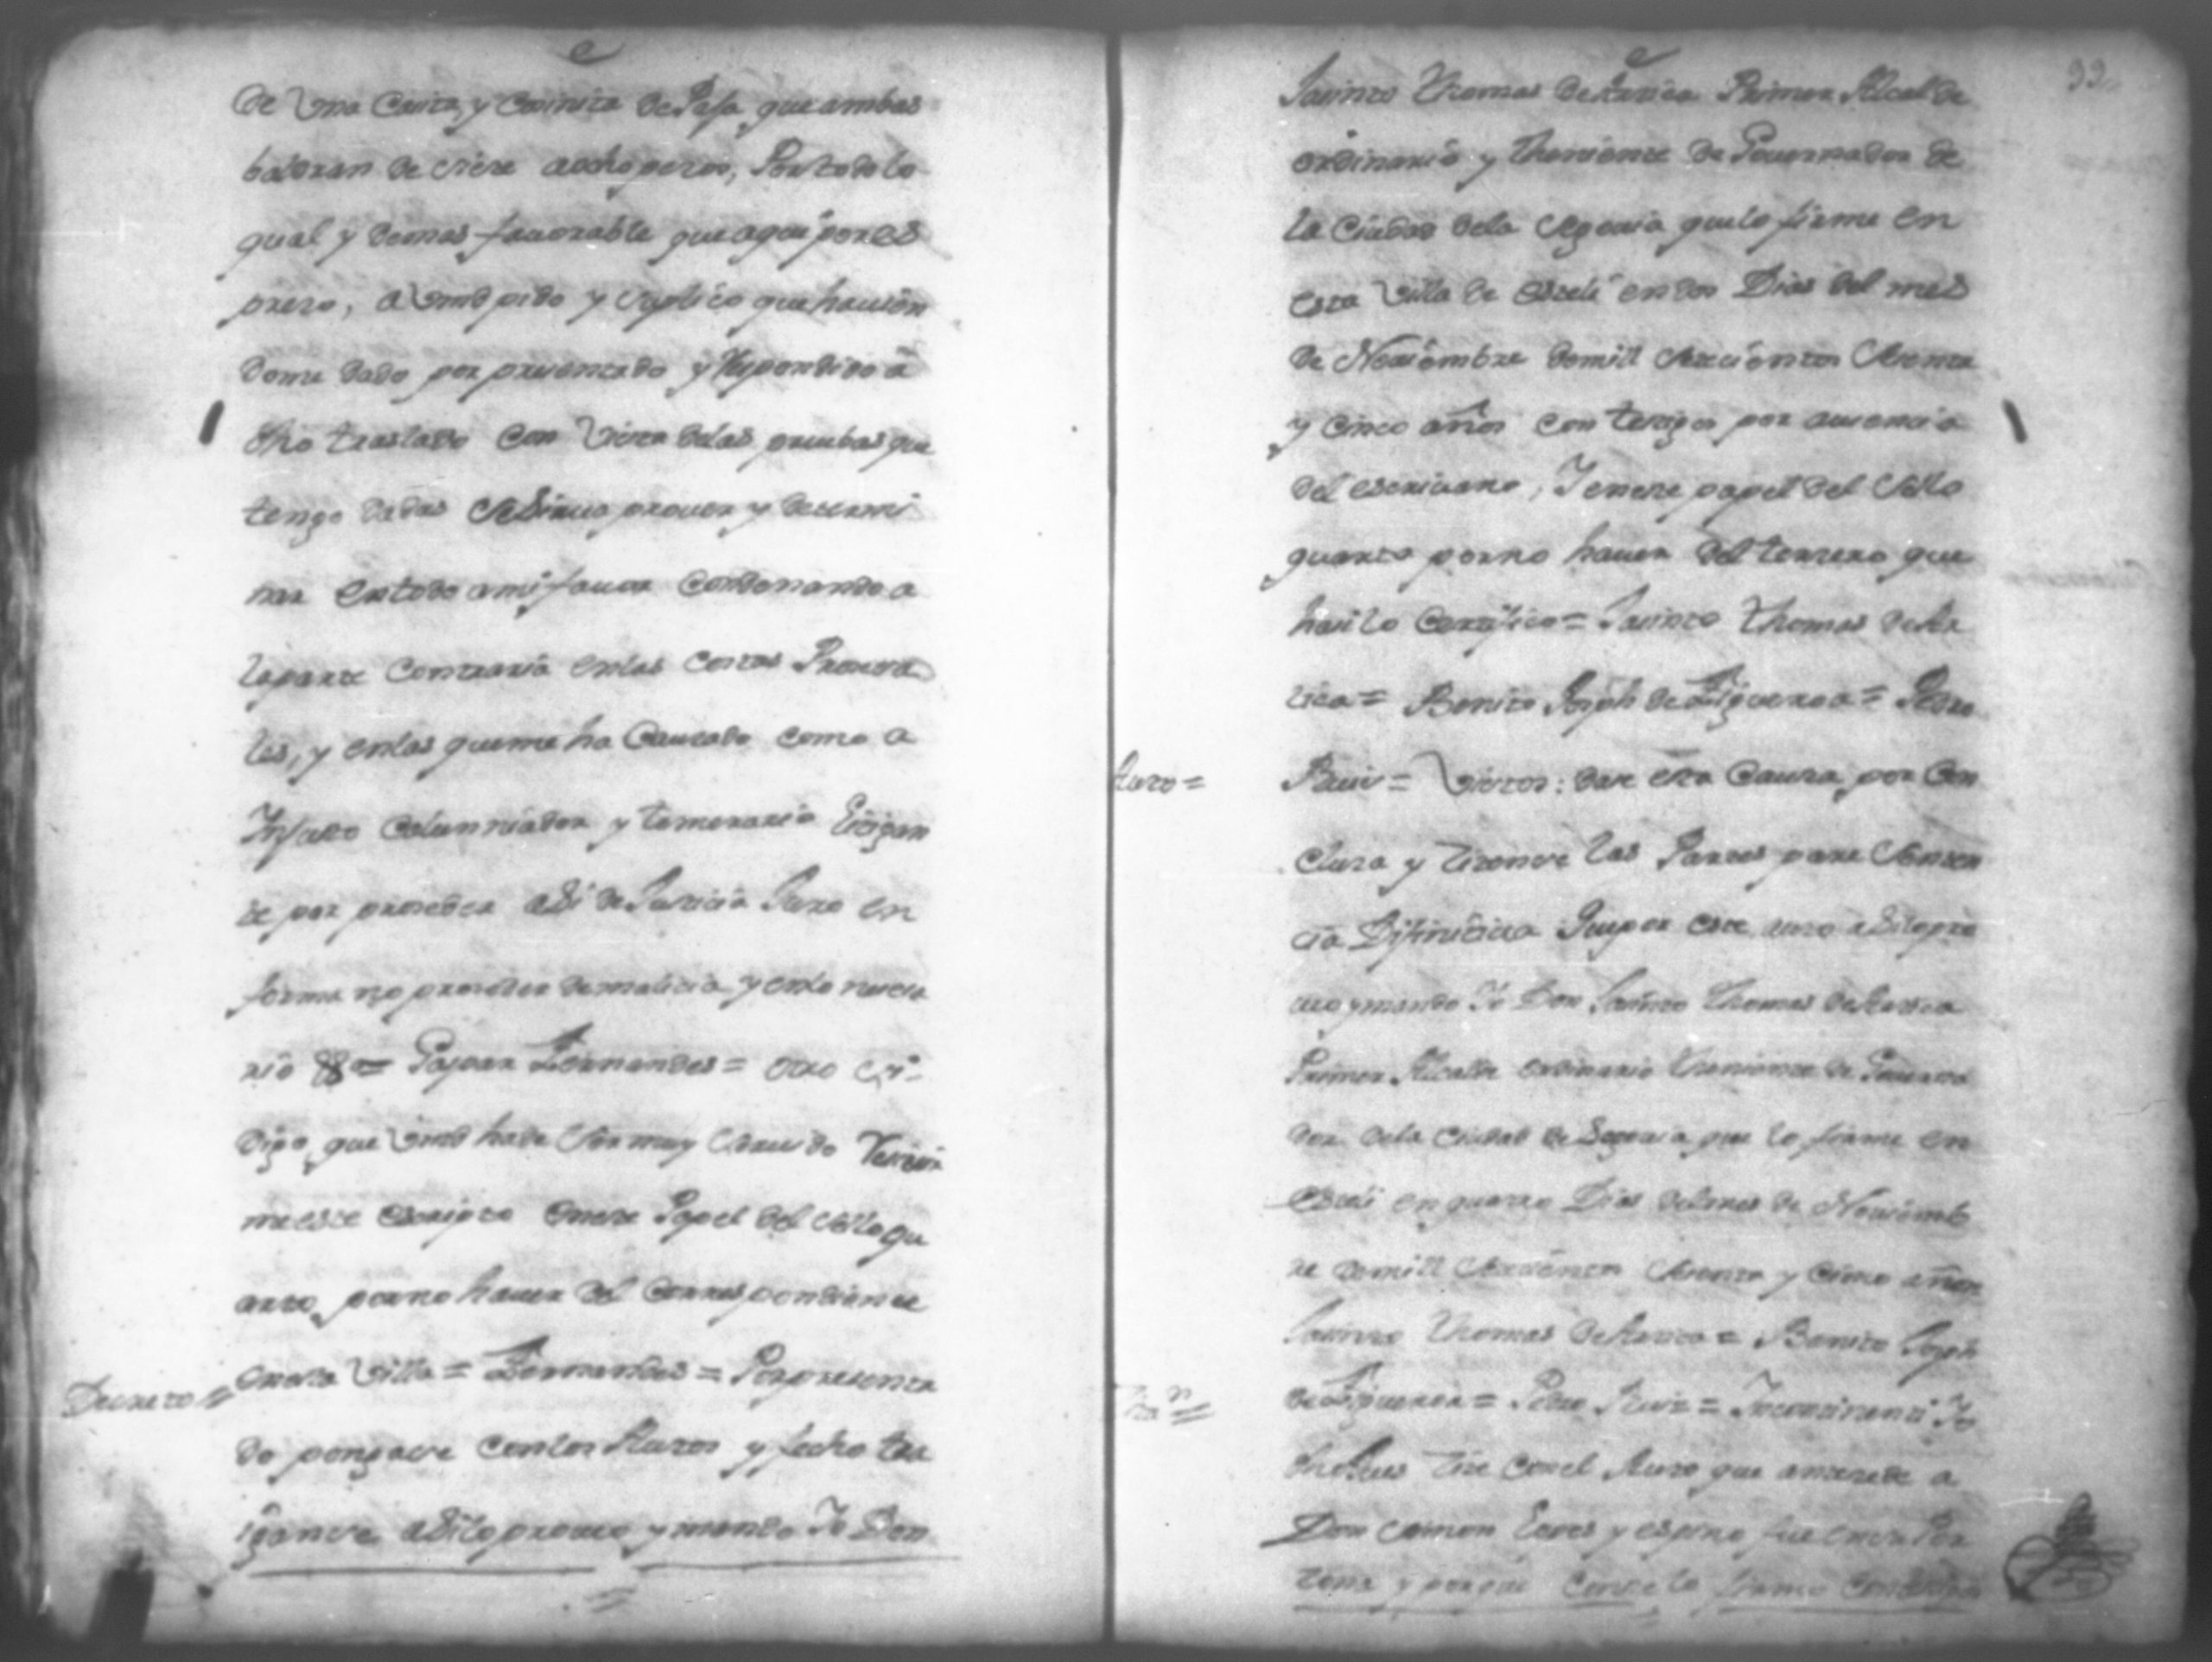 de Una Carta, y Camisa de Pasa, que ambas
baldran de siete a ocho pesos, Por todo lo
qual y demas fauorable que aqui por es
preso, a Vmd pido y suplico que hauien
dome dado por presentado y Respondido a
dho traslado con Vista delas pruebas que
tengo dadas se sirua proueer y determi
nar en todo a mi fauor condenando a
la parte Contraria en las costas Procesa
les, y en las que me ha Causado como a
Injusto Calumniador y temerario litigan
te por proceder asi de Justicia Juro en
forma no proceder de malicia y en lo necesa
rio &a = Gaspar Fernandes = otro si
digo, que Vmd ha de ser muy seruido Reciuir
me este escripto en este Papel del sello qu
arto, por no hauer del Correspondiente
en esta Villa = Fernandes = Por presenta
Decreto =
do pongase con los Autos y fecho tra
iganse asi lo proueo y mando Yo Don
99
Jasinto Thomas de Arsica Primer Alcalde
ordinario y Theniente de Gouernador de
la Ciudad de la Segouia que lo firme en
esta Villa de Esteli en dos Dias del mes
de Nouiembre de mill setecientos setenta
y cinco años con testigos por ausencia
del escriuano, Y en este papel del sello
quarto por no hauer del terzero que
haci lo Certifico = Jasinto Thomas de Ar
sica = Benito Joseph de Figueroa = Pedro
Auto =
Ruis = Vistos: dase esta Causa por Con
clusa y sitense las Partes para senten
cia Difinitiua Que por este auto asi lo pro
ueo y mando Yo Don Jasinto Thomas de Arsica
Primer Alcalde ordinario Theniente de Gouerna
dor de la Ciudad de Segouia que lo firme en
Esteli en quatro Dias del mes de Nouiemb
re de mill setecientos setenta y cinco años
Jasinto Thomas de Arsica = Benito Joseph
de Figueroa = Pedro Ruis = Incontinenti Yo
dho Jues site con el Auto que antesede a
Don Simon y espino fue en su Per
sona y para que Conste lo firmo